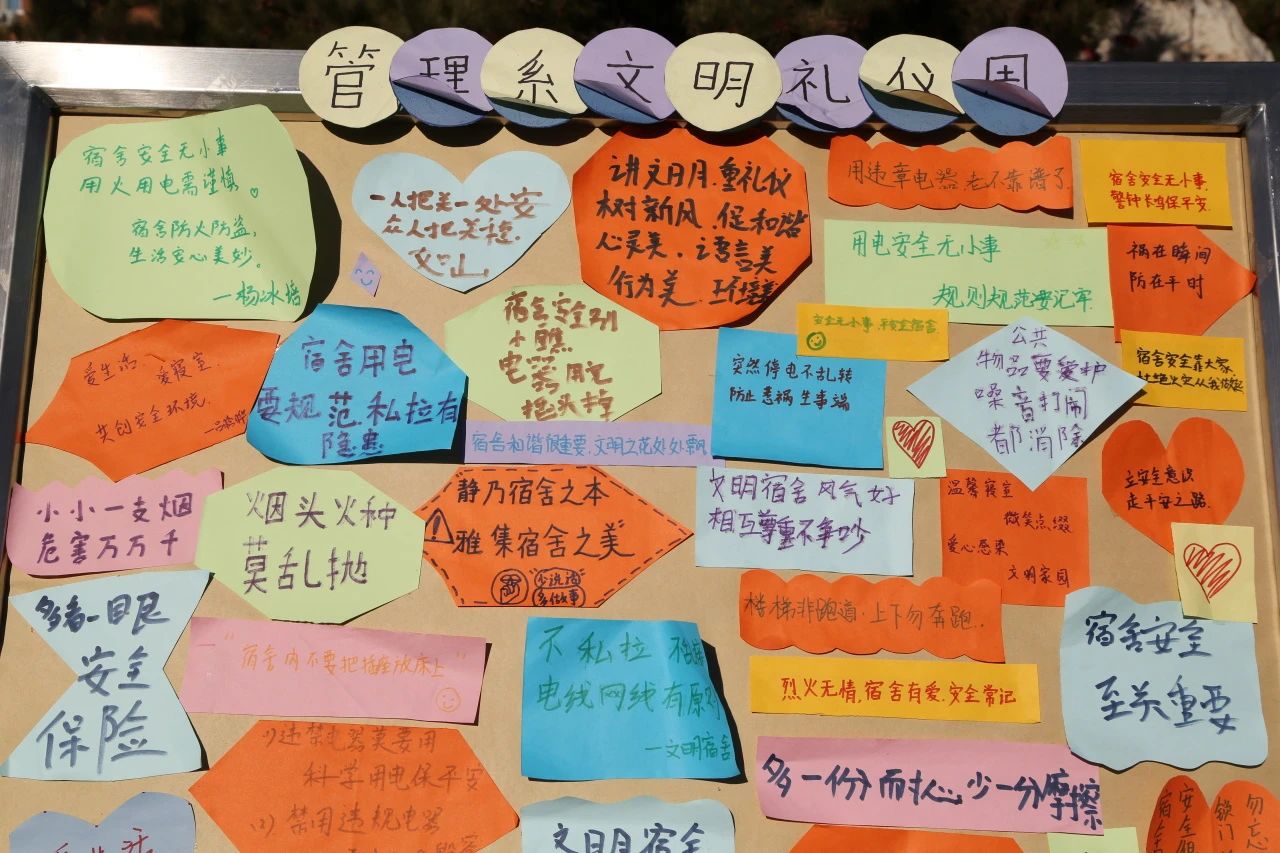 管理系文明礼仪周
宿舍安全无小事
用火用电需谨慎
宿舍防火防盗,
生活安心美妙。
一人把关一处安
众人把关稳
讲文明.重礼仪
树新风.促和谐
心灵美.语言美
行为美.
用违章电器 老不靠谱了
宿舍安全无小事,
警钟长鸣保平安.
用电安全无小事
规则规范要记牢
祸在瞬间
防在平时
爱生活、爱寝室.
共创安全环境.
宿舍用电
要规范.私拉有
隐患
宿舍安全别
小瞧
电器用完
把头拧
安全无小事.平安全宿舍.
突然停电不乱转
防止惹祸生事端
公共
物品要爱护
噪音打闹
都消除
宿舍安全靠大家
宿舍和谐很重要,文明之花处处飘
小小一支烟
危害万万千
烟头火种
莫乱抛
静乃宿舍之本
雅集宿舍之美
少说话
多做事
文明宿舍风气好
相互尊重不争吵
温馨寝室
微笑点缀
爱心感染
文明家园
立安全意识
走平安之路.
多看一眼
安全
保险
"宿舍内不要把插座放床上"
不私拉
电线网线有原则
—文明宿舍
楼梯非跑道·上下勿奔跑..
烈火无情,宿舍有爱,安全常记
宿舍安全
至关重要
1)违禁电器莫要用
科学用电保平安
(2)禁用违规电器
多一份耐心少一分摩擦
文明宿舍